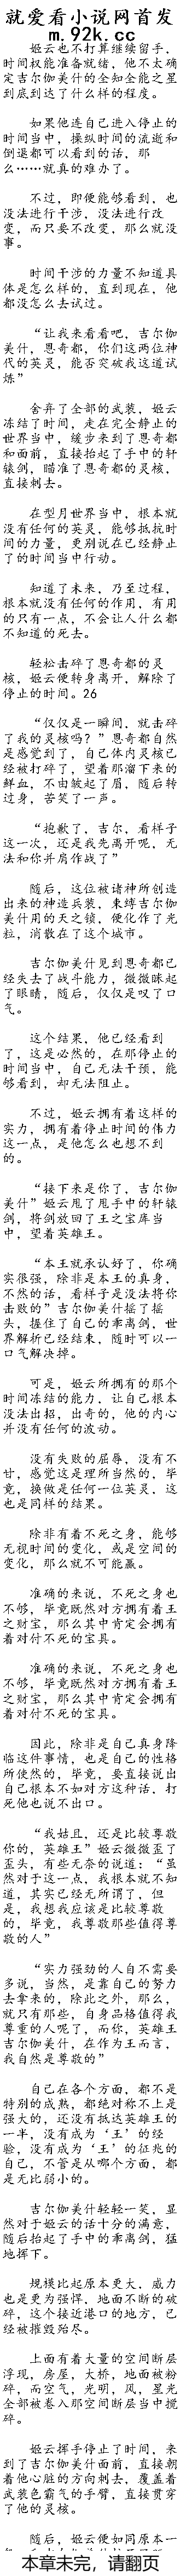 就爱看小说网首发
m.92k.cc
姬云也不打算继续留手，
时间权能准备就绪，他不太确
定吉尔伽美什的全知全能之星
到底到达了什么样的程度。
如果他连自己进入停止的
时间当中，操纵时间的流逝和
倒退都可以看到的话，那
么……就真的难办了。
不过，即便能够看到，也
没法进行干涉，没法进行改
变，而只要不改变，那么就没
事。
时间干涉的力量不知道具
体是怎么样的，直到现在，他
都没怎么去试过。
“让我来看看吧，吉尔伽
美什，恩奇都，你们这两位神
代的英灵，能否突破我这道试
炼”
舍弃了全部的武装，姬云
冻结了时间，走在完全静止的
世界当中，缓步来到了恩奇都
和面前，直接抬起了手中的轩
辕剑，瞄准了恩奇都的灵核，
直接刺去。
在型月世界当中，根本就
没有任何的英灵，能够抵抗时
间的力量，更别说在已经静止
了的时间当中行动。
知道了未来，乃至过程，
根本就没有任何的作用，有用
的只有一点，不会让人什么都
不知道的死去。
轻松击碎了恩奇都的灵
核，姬云便转身离开，解除了
停止的时间。26
“仅仅是一瞬间，就击碎
了我的灵核吗？”恩奇都自然
是感觉到了，自己体内灵核已
经被打碎了，望着那溜下来的
鲜血，不由皱起了眉，随后转
过身，苦笑了一声。
“抱歉了，吉尔，看样子
这一次，还是我先离开呢，无
法和你并肩作战了”
随后，这位被诸神所创造
出来的神造兵装，束缚吉尔伽
美什用的天之锁，便化作了光
粒，消散在了这个城市。
吉尔伽美什见到恩奇都已
经失去了战斗能力，微微眯起
了眼睛，随后，仅仅是叹了口
气。
这个结果，他已经看到
了，这是必然的，在那停止的
时间当中，自己无法干预，能
够看到，却无法阻止。
不过，姬云拥有着这样的
实力，拥有着停止时间的伟力
这一点，是他怎么也想不到
的。
“接下来是你了，吉尔伽
美什”姬云甩了甩手中的轩辕
剑，将剑放回了王之宝库当
中，望着英雄王。
“本王就承认好了，你确
实很强，除非是本王的真身，
不然的话，看样子是没法将你
击败的”吉尔伽美什摇了摇
头，握住了自己的乖离剑，世
界解析已经结束，随时可以一
口气解决掉。
可是，姬云所拥有的那个
时间冻结的能力，让自己根本
没法出招，出奇的，他的内心
并没有任何的波动。
没有失败的屈辱，没有不
甘，感觉这是理所当然的，毕
竟，换做是任何一位英灵，这
也是同样的结果。
除非有着不死之身，能够
无视时间的变化，或是空间的
变化，那么就不可能赢。
准确的来说，不死之身也
不够，毕竟既然对方拥有着王
之财宝，那么其中肯定会拥有
着对付不死的宝具。
准确的来说，不死之身也
不够，毕竟既然对方拥有着王
之财宝，那么其中肯定会拥有
着对付不死的宝具。
因此，除非是自己真身降
临这件事情，也是自己的性格
所使然的，毕竟，要直接说出
自己根本不如对方这种话，打
死他也说不出口。
“我姑且，还是比较尊敬
你的，英雄王”姬云微微歪了
歪头，有些无奈的说道：“虽
然对于这一点，我根本就不知
道，其实已经无所谓了，但
是，我想我应该是比较尊敬
的，毕竟，我尊敬那些值得尊
敬的人”
“实力强劲的人自不需要
多说，当然，是靠自己的努力
去拿来的，除此之外，那么，
就只有那些，自身品格值得我
尊重的人呢了，而你，英雄王
吉尔伽美什，在作为王而言，
我自然是尊敬的”
自己在各个方面，都不是
特别的成熟，都绝对称不上是
强大的，还没有抵达英雄王的
一半，没有成为‘王’的经
验，没有成为‘王’的征兆的
自己，不管是从哪个方面，都
是无比弱小的。
吉尔伽美什轻轻一笑，显
然对于姬云的话十分的满意，
随后抬起了手中的乖离剑，猛
地挥下。
规模比起原本更大，威力
也是更为强悍，地面不断的破
碎，这个接近港口的地方，已
经被摧毁殆尽。
上面有着大量的空间断层
浮现，房屋，大桥，地面被粉
碎，而空气，光明，风，星光
全部被卷入那空间断层当中搅
碎。
姬云挥手停止了时间，来
到了吉尔伽美什面前，直接朝
着他心脏的方向刺去，覆盖着
武装色霸气的手臂，直接贯穿
了他的灵核。
随后，姬云便如同原本一
本章未完，请翻页